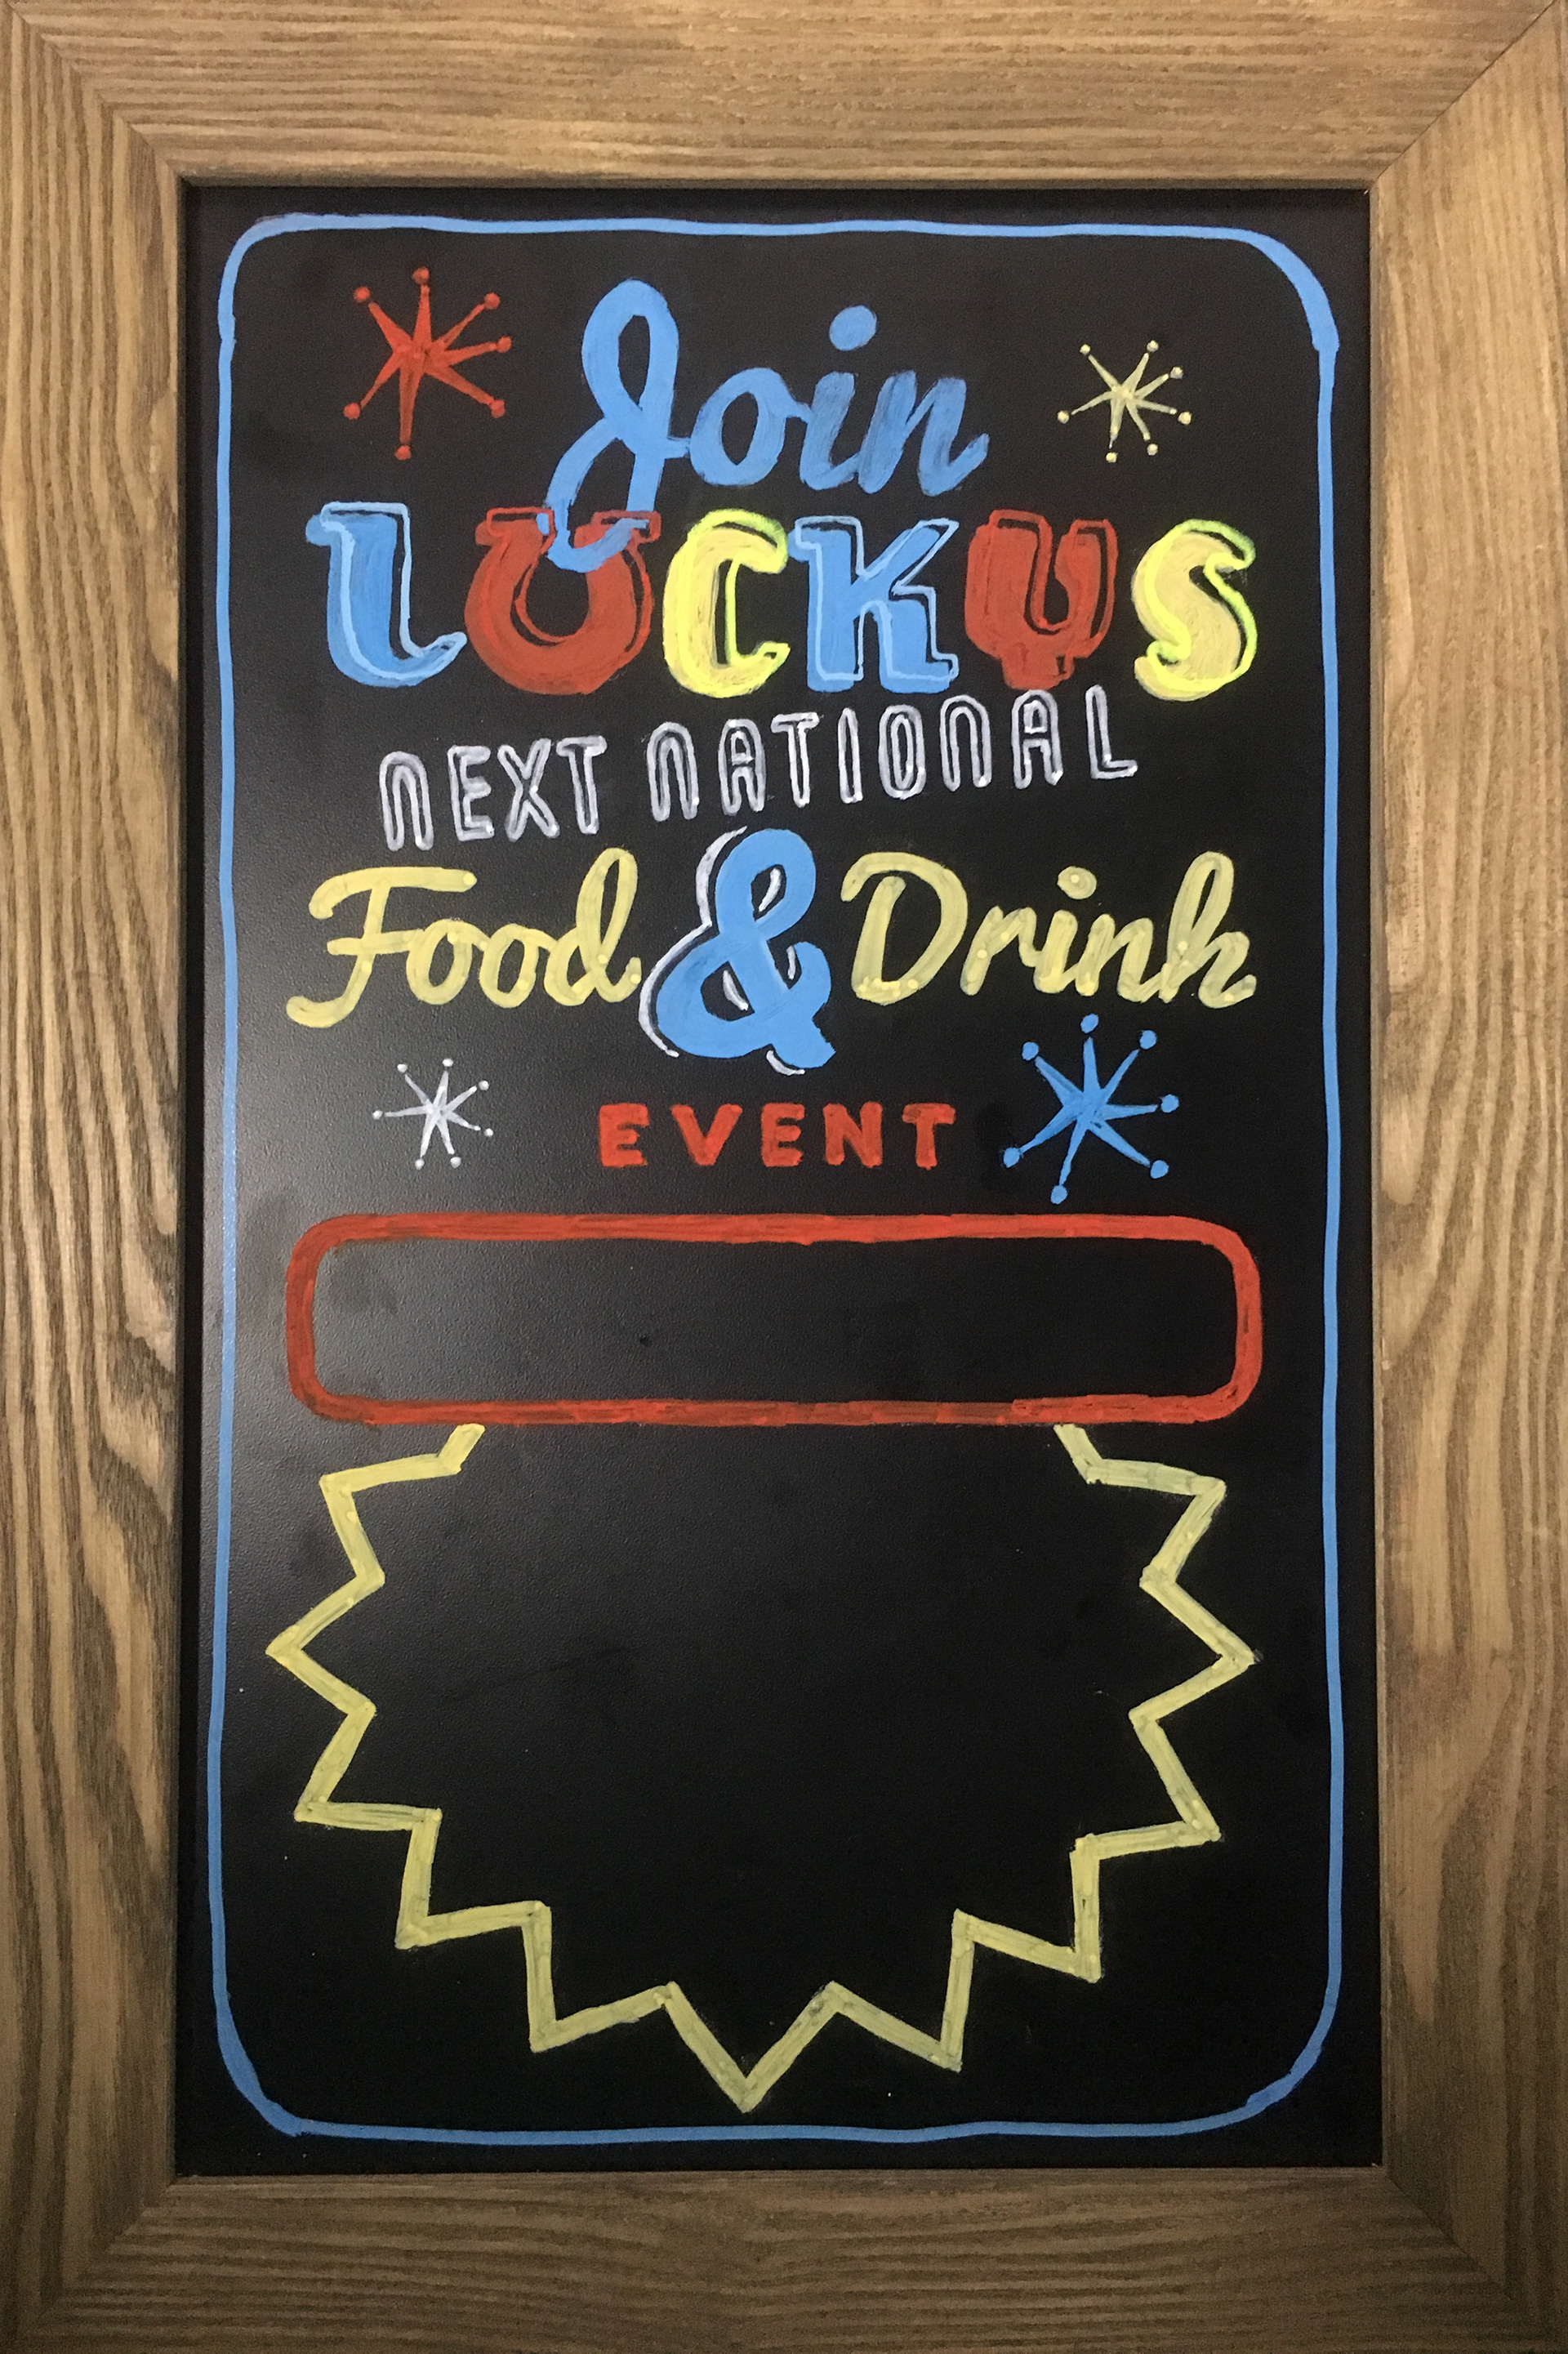 Join
LUCKYS
NEXT NATIONAL
Food & Drink
EVENT